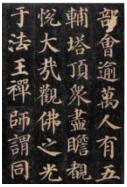 部會逾萬人有五
輔塔頂衆盡瞻覩
恱大㢤觀佛之光
于法王禪師謂同